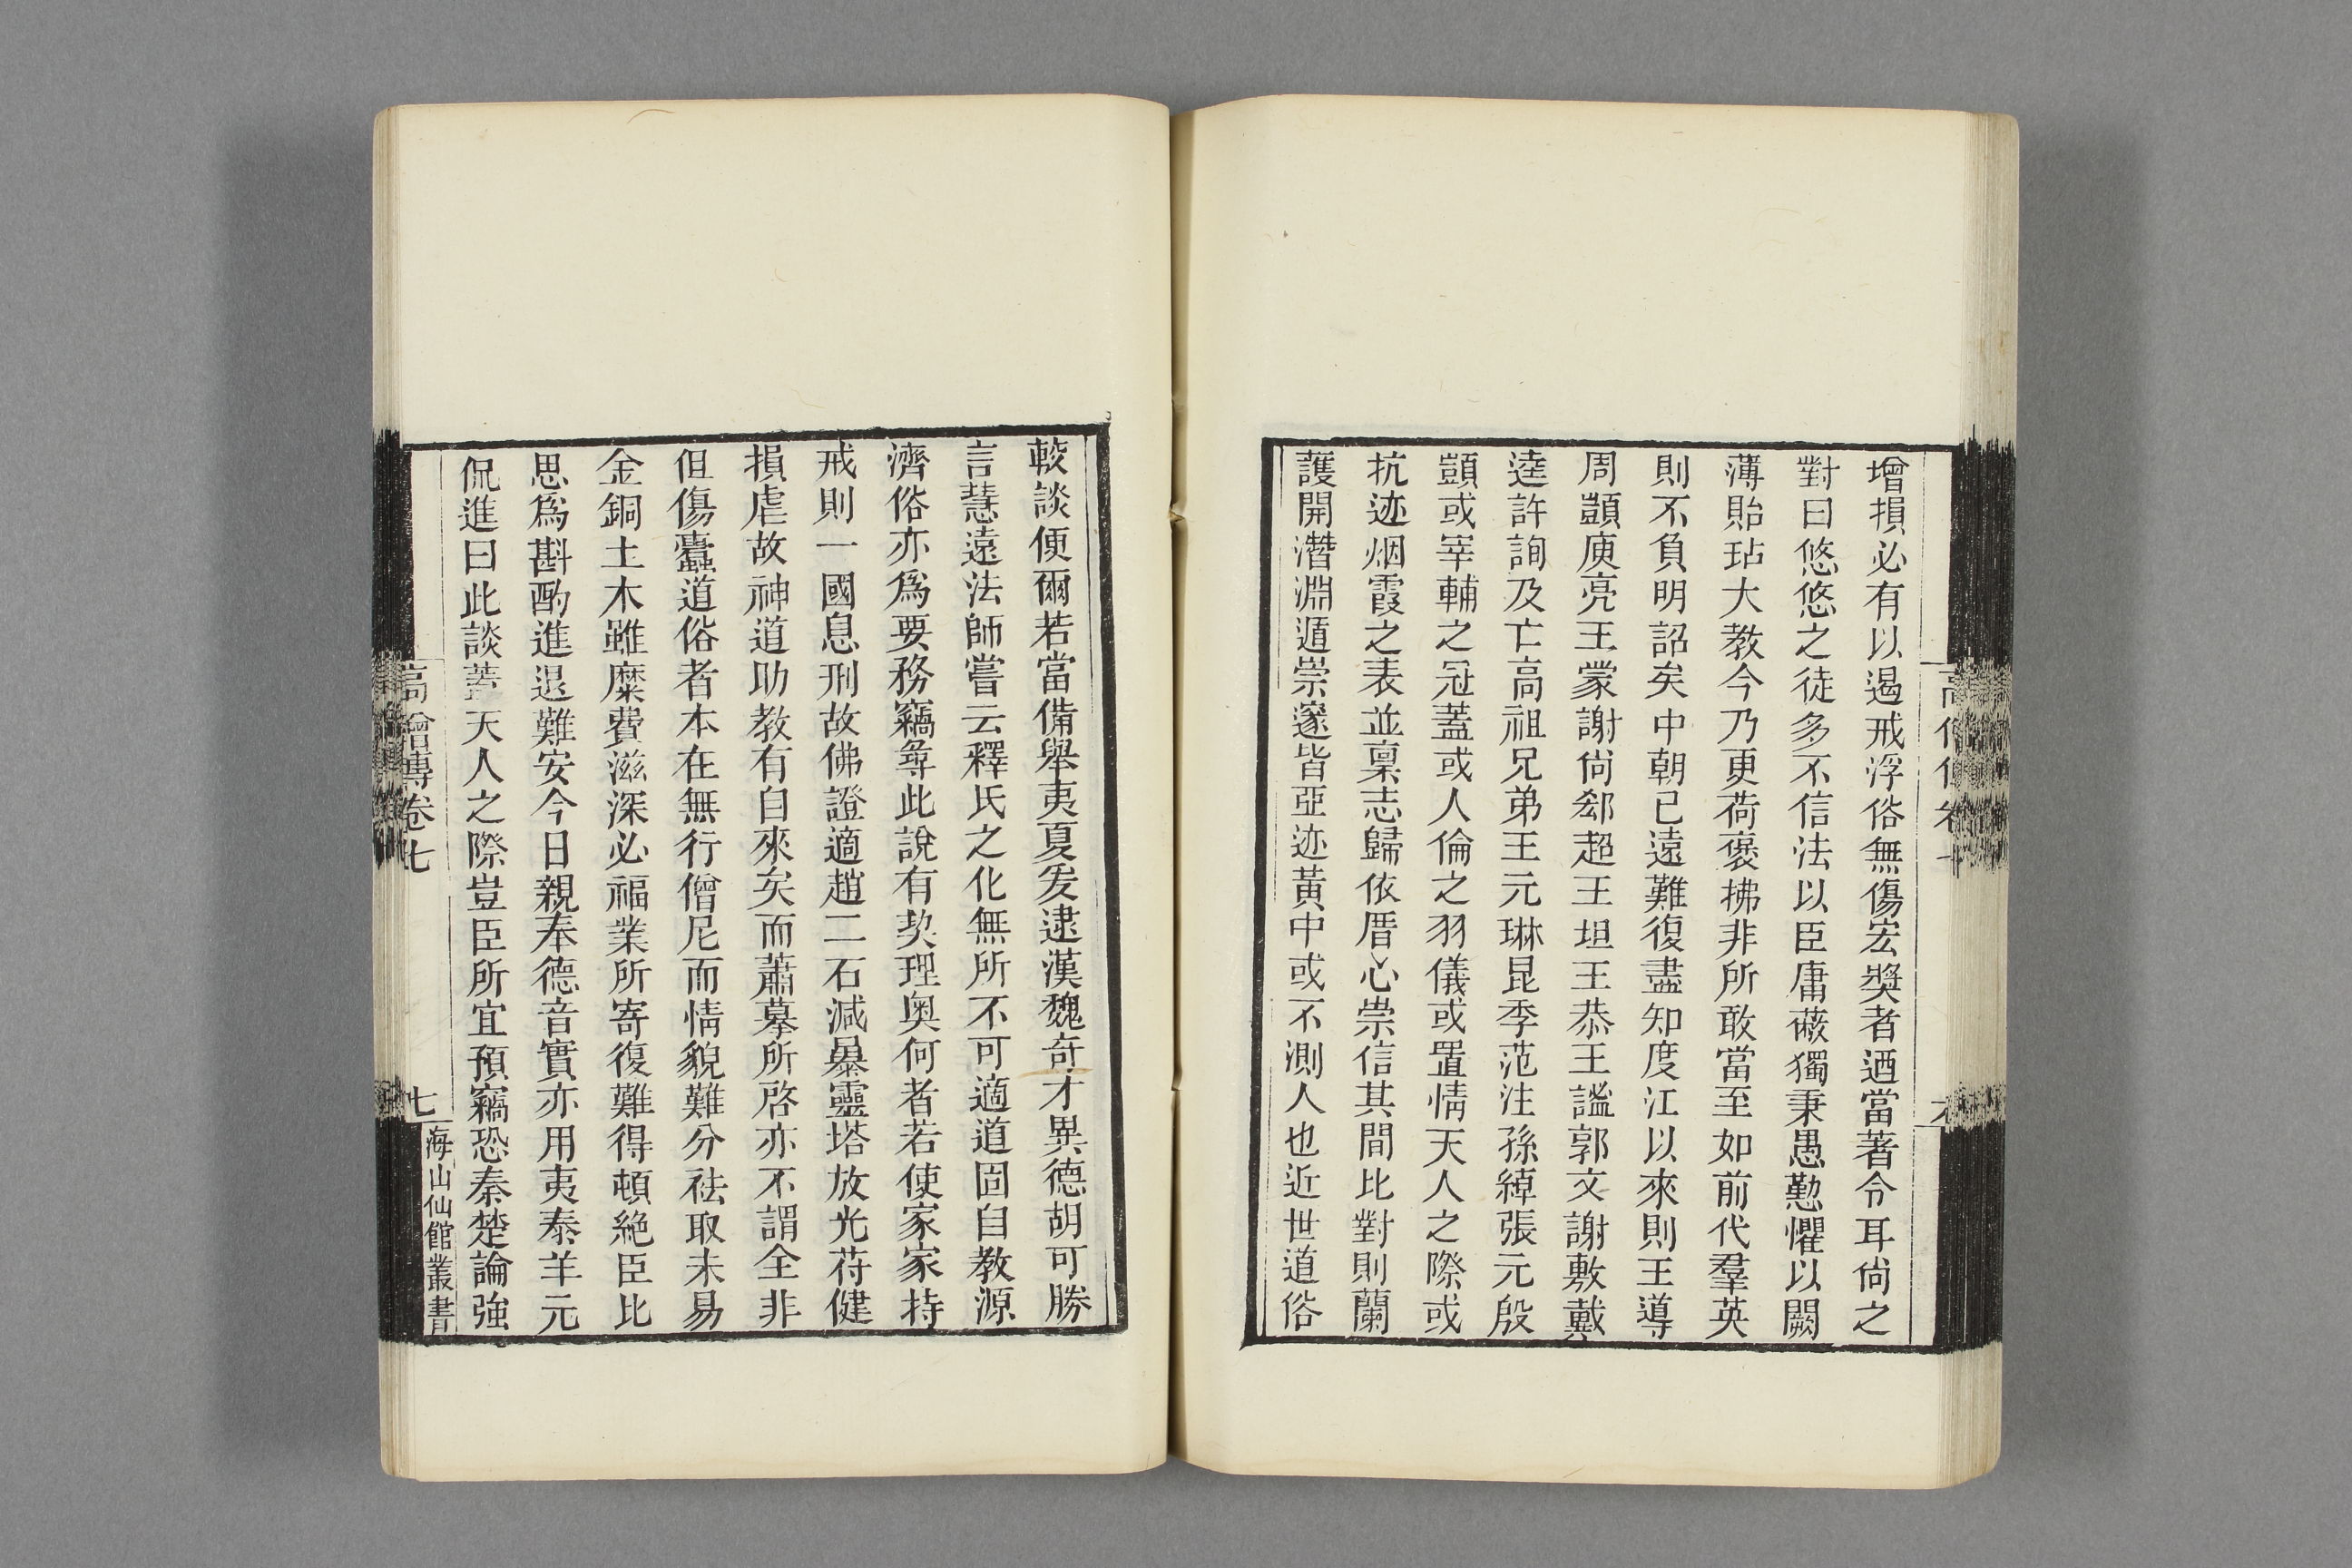 增損必有以遏戒浮俗無傷宏獎者迺當著令耳尙之
對曰悠悠之徒多不信法以臣庸蔽獨秉愚懃懼以闕
薄貽玷大教今乃更荷褒拂非所敢當至如前代羣英
則不負明詔矣中朝已遠難復盡知度江以來則王導
周顗庾亮王蒙謝尙郄超王坦王恭王謐郭文謝敷戴
逵許詢及亡高祖兄弟王元琳昆季范汪孫綽張元殷
顗或宰輔之冠蓋或人倫之羽儀或置情天人之際或
抗迹烟霞之表並稟志歸依厝心崇信其間比對則蘭
護開潛淵遁崇邃皆亞迹黃中或不測人也近世道俗
較談便爾若當備舉夷夏爰逮漢魏奇才異德胡可勝
言慧遠法師嘗云釋氏之化無所不可適道固自教源
濟俗亦爲要務竊尋此說有契理奧何者若使家家持
戒則一國息刑故佛證適趙二石減暴靈塔放光苻健
損虐故神道助教有自來矣而蕭摹所啓亦不謂全非
但傷蠹道俗者本在無行僧尼而情貌難分祛取未易
金銅土木雖糜費滋深必福業所寄復難得頓絕臣比
思爲斟酌進退難安今日親奉德音實亦用夷泰羊元
侃進曰此談蓋天人之際豈臣所宜預竊恐秦楚論強
高僧傳卷七
七
海山仙館叢書